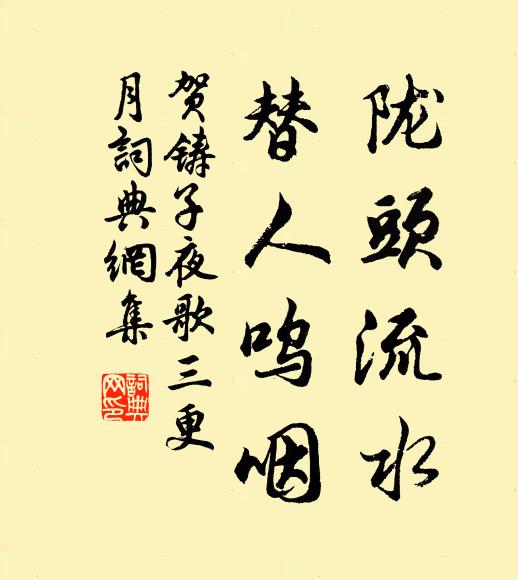 陇頭流水
替人呜咽
贺铸子夜歌三更
月詞典網集
詞典网印